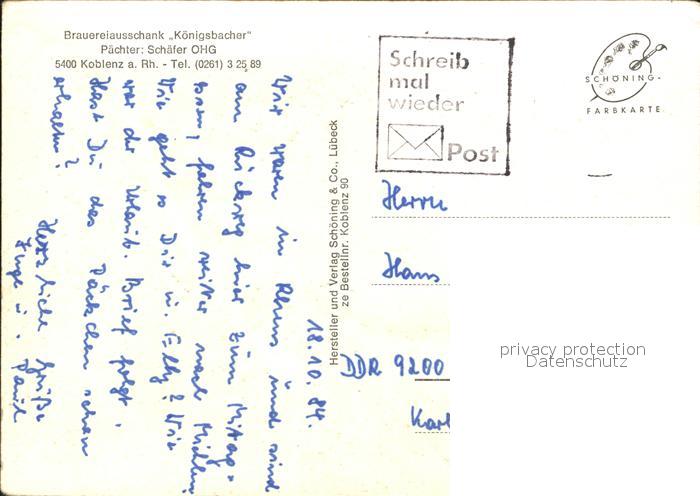 Brauereiausschank „Königsbacher"
Pächter: Schäfer OHG
5400 Koblenz a. Rh. - Tel. (0261) 3 25 89
Schreib
mal
wieder
Post
SCHÖNING-
FARBKARTE
Hersteller und Verlag Schöning & Co., Lübeck
ze Bestellnr. Koblenz 90
18.10.84.
Wir waren in Rhens und sind
am Rückweg hier zum Mittag-
essen, fahren weiter nach
Wie geht es Dir u. Elly? Wie
war der Urlaub. Brief folgt.
Hast Du das Päckchen schon
erhalten?
Herzliche Grüße
Inge u. Paul
Herrn
Hans
DDR 9200
Karl
privacy protection
Datenschutz